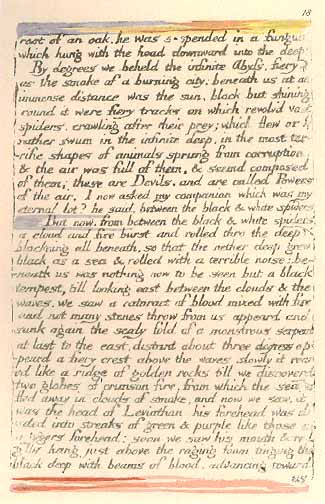 18
root of an oak. he was suspended in a fungus
which hung with the head downward into the deep:
By degrees we beheld the infinite Abyss, fiery
as the smoke of a burning city; beneath us at an
immense distance was the sun, black but shining
round it were fiery tracks on which revolv'd vast
spiders, crawling after their prey; which flew or
rather swum in the infinite deep, in the most ter-
rific shapes of animals sprung from corruption.
& the air was full of them, & seemd composed
of them; these are Devils. and are called Powers
of the air, I now asked my companion which was my
eternal lot? he said, between the black & white spiders
But now, from between the black & white spiders
a cloud and fire burst and rolled thro the deep
blackning all beneath, so that the nether deep grew
black as a sea & rolled with a terrible noise: be-
neath us was nothing now to be seen but a black
tempest, till looking east between the clouds & the
waves, we saw a cataract of blood mixed with fire
and not many stones throw from us appeard and
sunk again the scaly fold of a monstrous serpent
at last to the east, distant about three degrees ap-
peard a fiery crest above the waves slowly it rear
ed like a ridge of golden rocks till we discoverd
two globes of crimson fire, from which the sea
fled away in clouds of smoke, and now we saw, it
was the head of Leviathan. his forehead was di-
vided into streaks of green & purple like those on
a tygers forehead: soon we saw his mouth & red
gills hang just above the raging foam tinging the
black deep with beams of blood, advancing toward
us